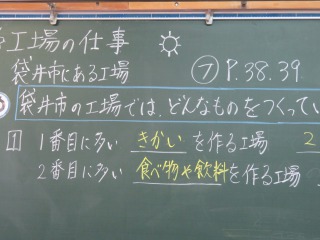 工場の仕事
袋井市にある工場 ⑦ P.38.39
袋井市の工場では、どんなものをつくってい
1 1番目に多い きかい を作る工場 2
2番目に多い 食べ物や飲料を作る工場